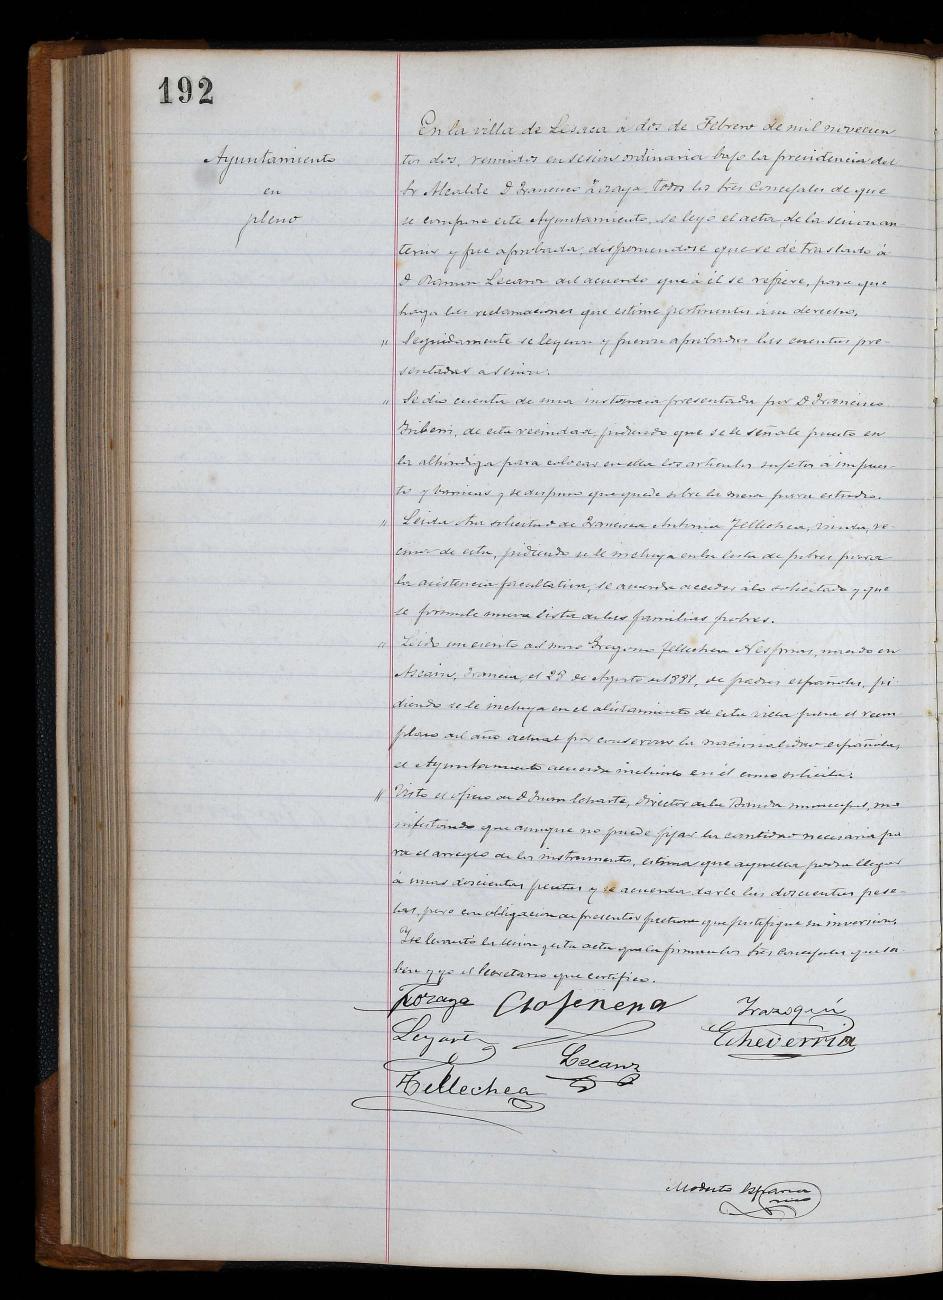 192
Ayuntamiento
en
pleno
En la villa de Lesaca á dos de Febrero de mil novecien
tos dos, reunidos en sesion ordinaria bajo la presidencia del
Sr Alcalde D Francisco todos los Sres Concejales de que
se compone este Ayuntamiento, se leyó el acta de la sesion an
terior y fue aprobada, disponiendose que se dé traslado á
D Ramon Lecaroz del acuerdo que á él se refiere, para que
haga las reclamaciones que estime pertinentes á su derecho.
" Seguidamente se leyeron y fueron aprobadas las cuentas pre-
sentadas a sesion.
" Se dió cuenta de una instancia presentada por D Francisco
de esta vecindad, pidiendo que se le señale puesto en
la alhondiga para colocar en ella los articulos sujetos á impues-
to y se dispuso que quede sobre la mesa para estudio.
" Leida una solicitud de Francisca Antonia Tellechea, viuda, ve-
cina de esta, pidiendo se le incluya en la lista de pobres para
la asistencia facultativa, se acuerda acceder á lo solicitado y que
se formule nueva lista de las familias pobres.
" Leido un escrito del mozo Gregorio Tellechea nacido en
Ascain, Francia, el 29 de Agosto de 1881, de padres españoles, pi-
diendo se le incluya en el alistamiento de esta villa para el reem
plazo del año actual por conservar la nacionalidad española,
el Ayuntamiento acuerda incluirlo en él como solicita.
" Visto el oficio de D Juan Director de la Banda municipal, ma
nifestando que aunque no puede fijar la cantidad necesaria pa
ra el arreglo de los instrumentos, estima que aquella podrá llegar
á unas doscientas pesetas y se acuerda darle las doscientas pese-
tas, pero con obligacion de presentar factura que justifique su inversion.
Y se levantó la sesion y esta acta que la firman los Sres Concejales que sa
ben y yo el Secretario que certifico.
Irazoqui
Echeverria
Lecaroz
Tellechea
Modesto